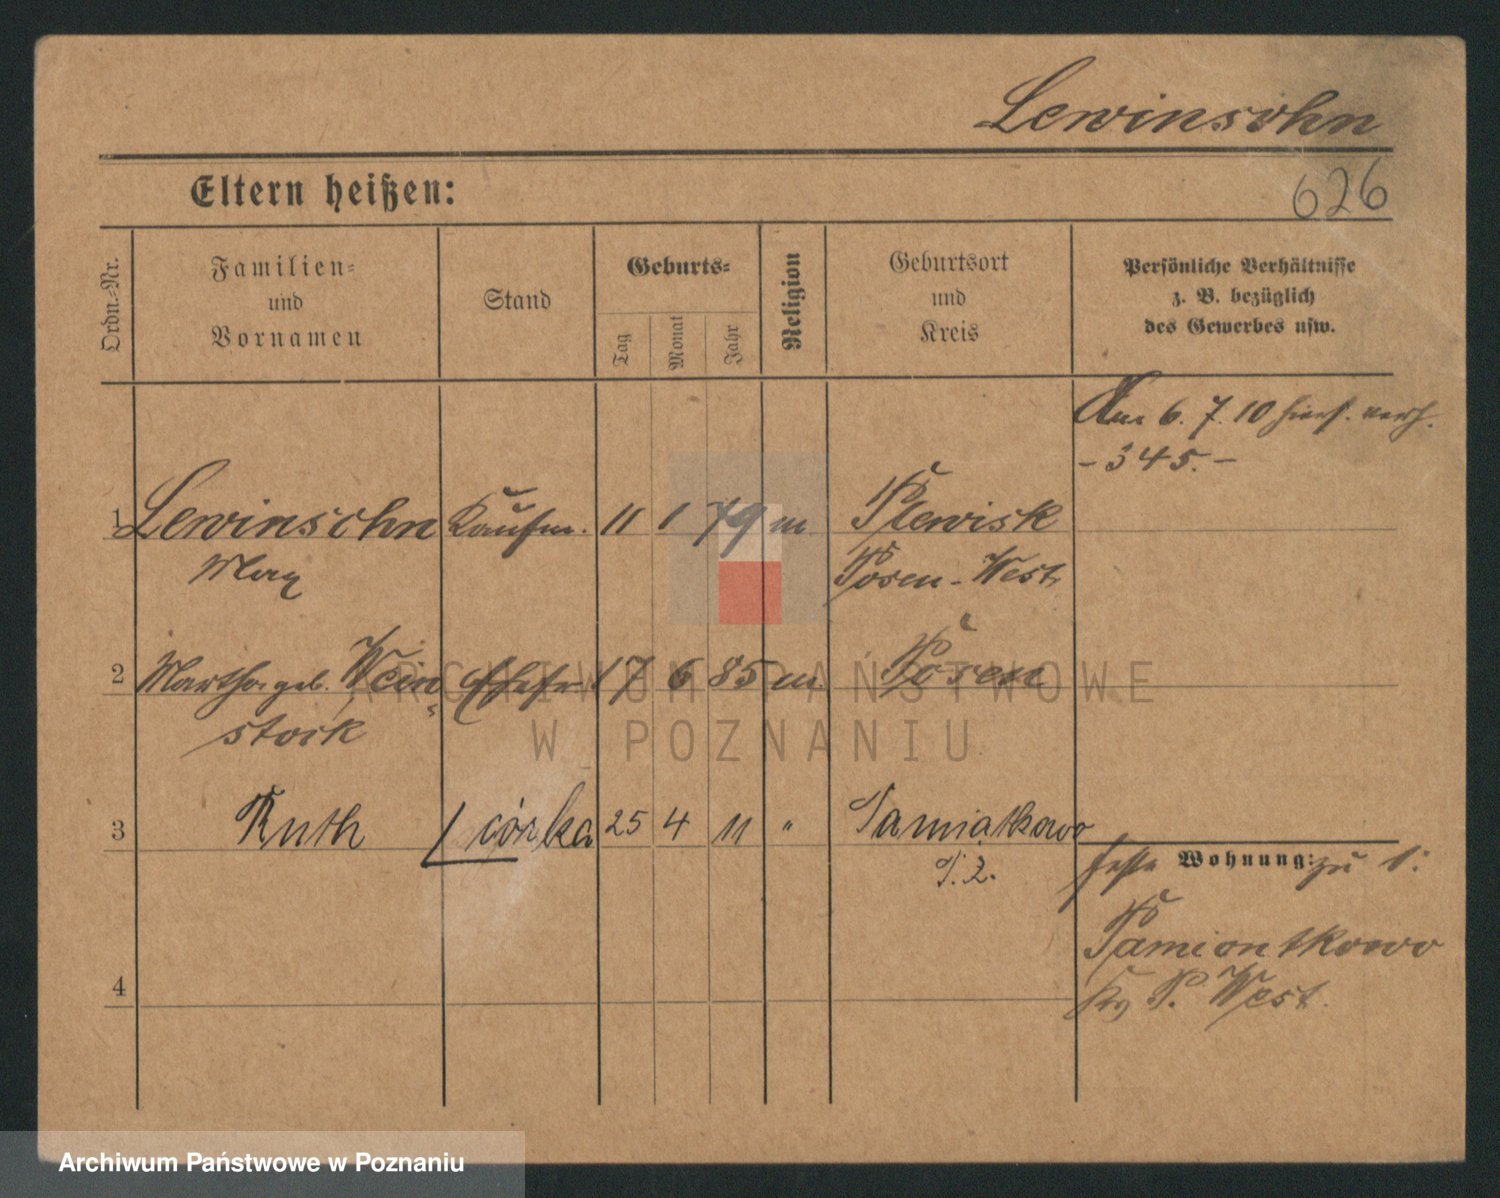 Lewinsohn
Eltern heißen:
626
Ordn.-Nr.
Familien-
und
Vornamen
Stand
Geburts-
Tag
Monat
Jahr
Religion
Geburtsort
und
Kreis
Persönliche Verhältnisse
z. B. bezüglich
des Gewerbes usw.
Am 6. 7. 10 hiers. verh.
- 345. -
1 Lewinsohn Kaufm. 11 1 79 m Plewisk
Max Posen-West
2 Martha geb. Wein- Ehefr. 17 6 85 m. Posen
stock
3 Ruth córka 25 4 11 " Pamiatkowo
P. Z.
feste Wohnung: zu 1:
Pamiontkowo
Krs P. West.
4
ARCHIWUM PAŃSTWOWE
W POZNANIU
Archiwum Państwowe w Poznaniu